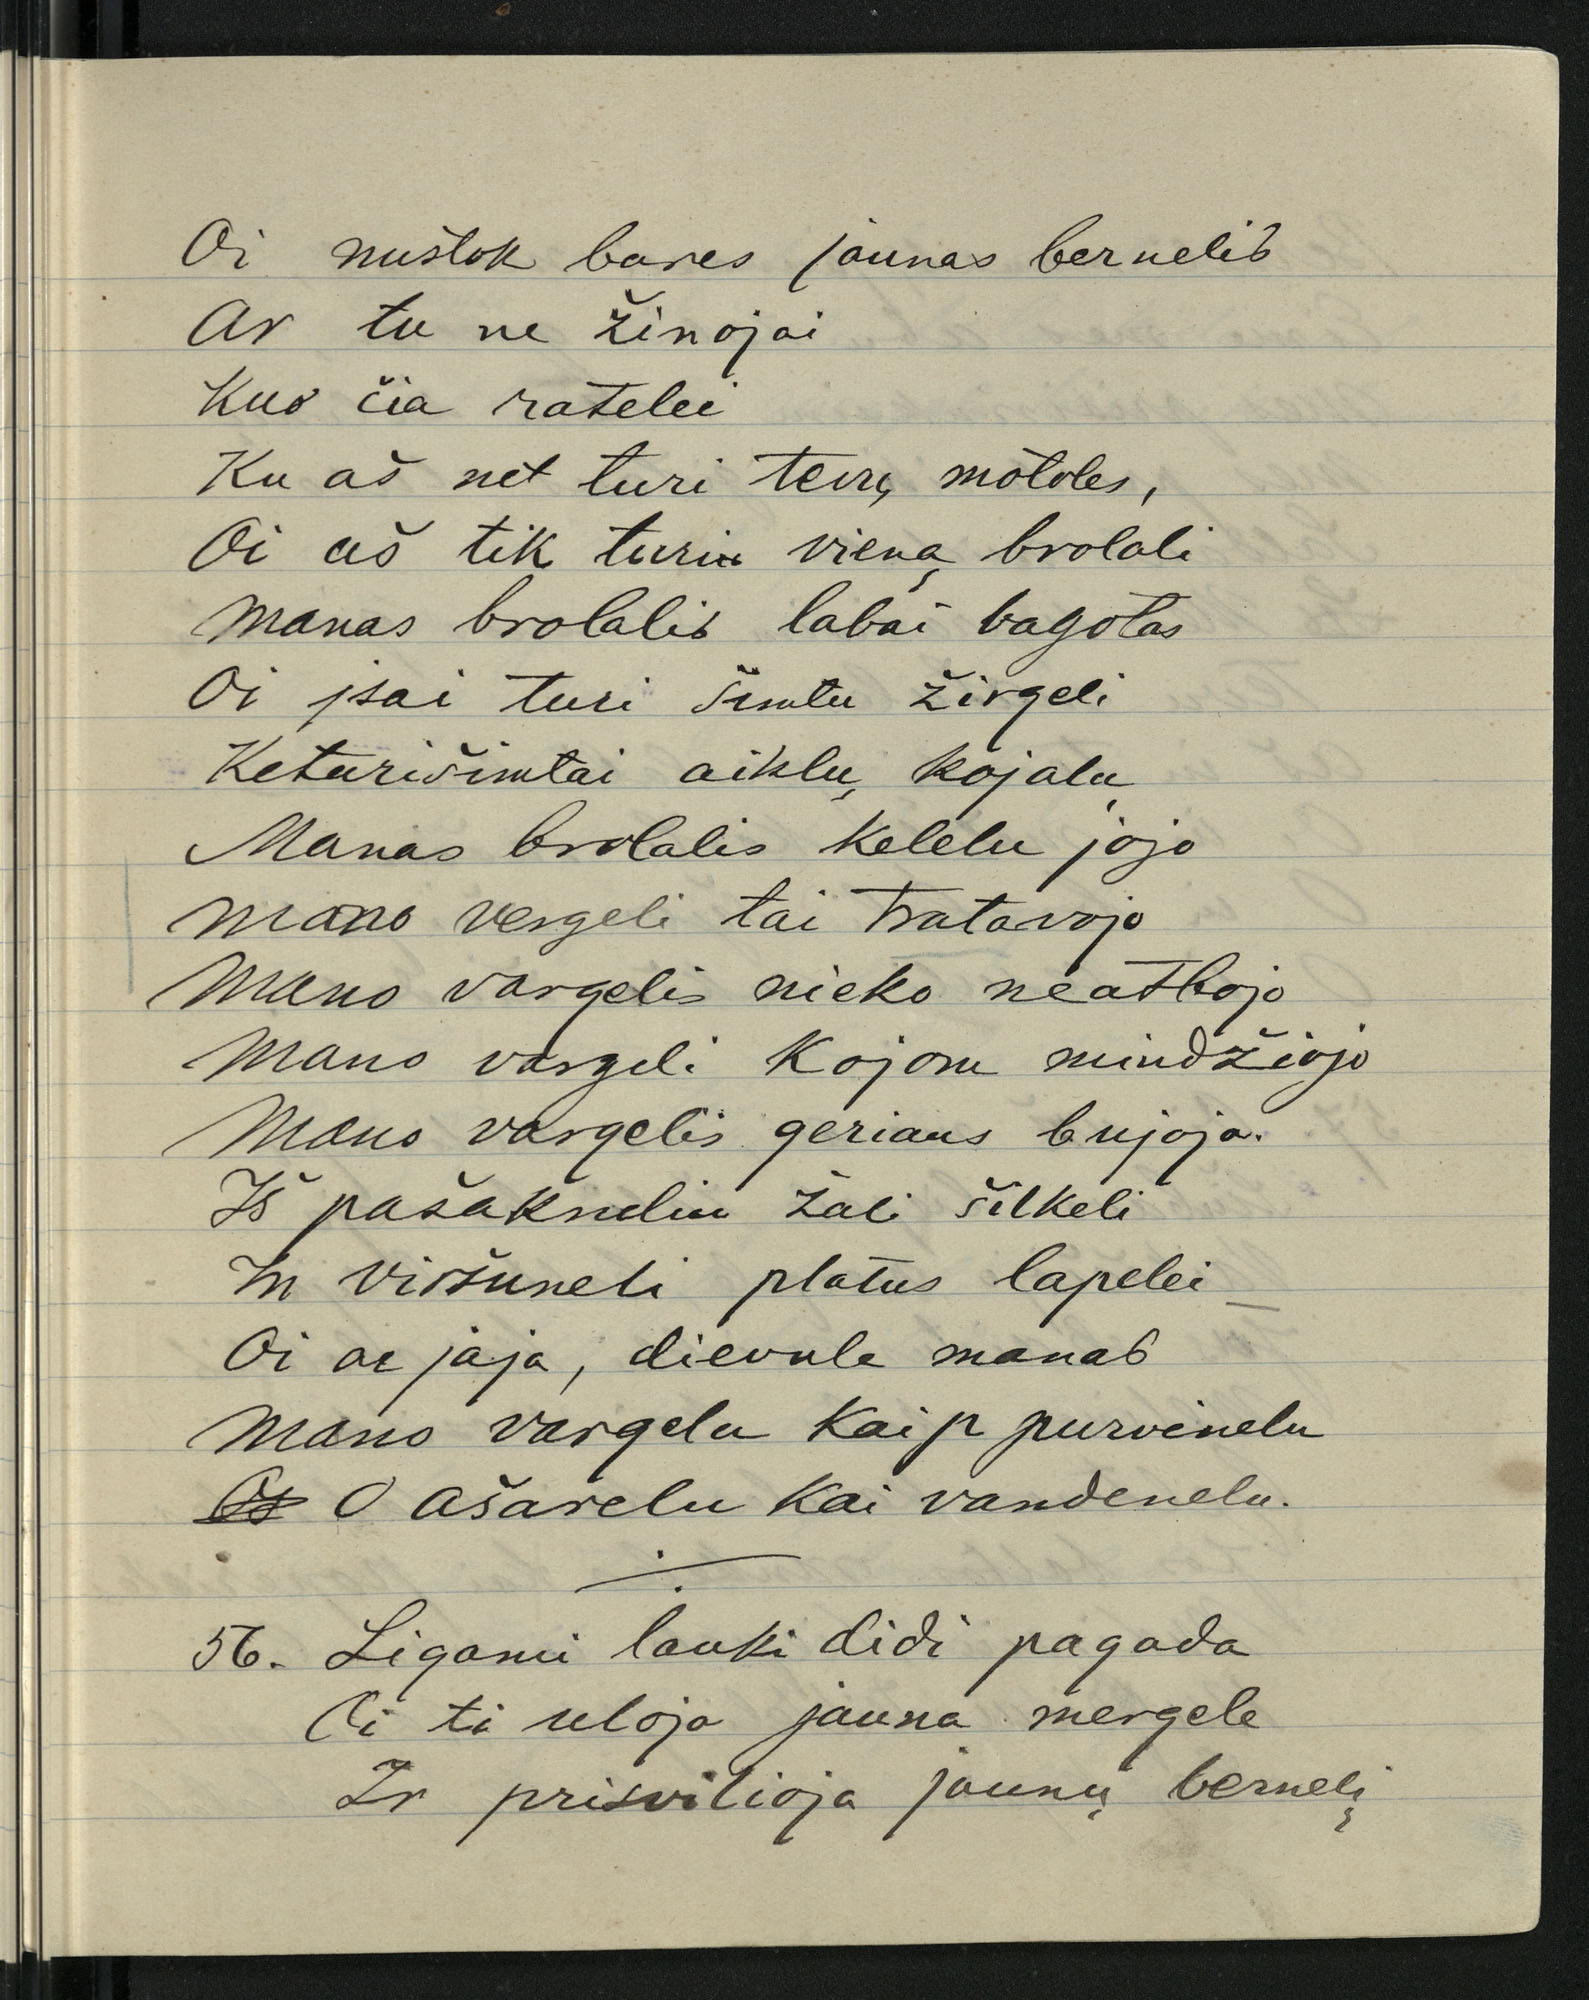 Oi nuštok bares jaunas bernelis
Ar tu ne žinojai
Kuo čia ratelei
Ku aš net turi tevų motoles,
Oi aš tik turiu vieną brolali
Manas brolalis labai bagotas
Oi jsai turi šimtu žirgeli
Keturišimtai aiklų kojalų
Manas brolalis kelelu jojo
Mano vergeli tai tratavojo
Mano vargelis nieko neatbojo
Mano vargeli kojom mindžiojo
Mano vargelis geriaus bujoja.
Iš pašakneliu žali šilkeli
In viršuneli platus lapelei
Oi ae jaja, dievule manas
Mano vargelu kaip purvinelu
O ašarelu kai vandenelu.
56. Ligami lauki didi pagada
Oi ti uloja jauna mergele
Ir prisvilioja jaunų bernelį